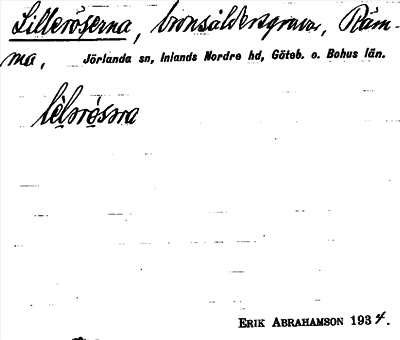 Lilleröserna, bronsåldersgravar, Räm-
ma, Jörlanda sn, Inlands Nordre hd, Göteb. o. Bohus län.
ERIK ABRAHAMSON 1934.